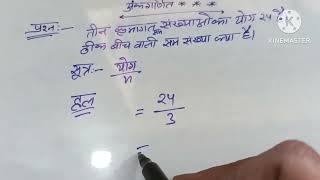 अंकगणित * * *
प्रश्न:- तीन क्रमागत सम संख्याओंका योग 24 है
ठीक बीच वाली सम संख्या क्या है।
सूत्र:- योग
n
हल = 24
3
=
KINEMASTER